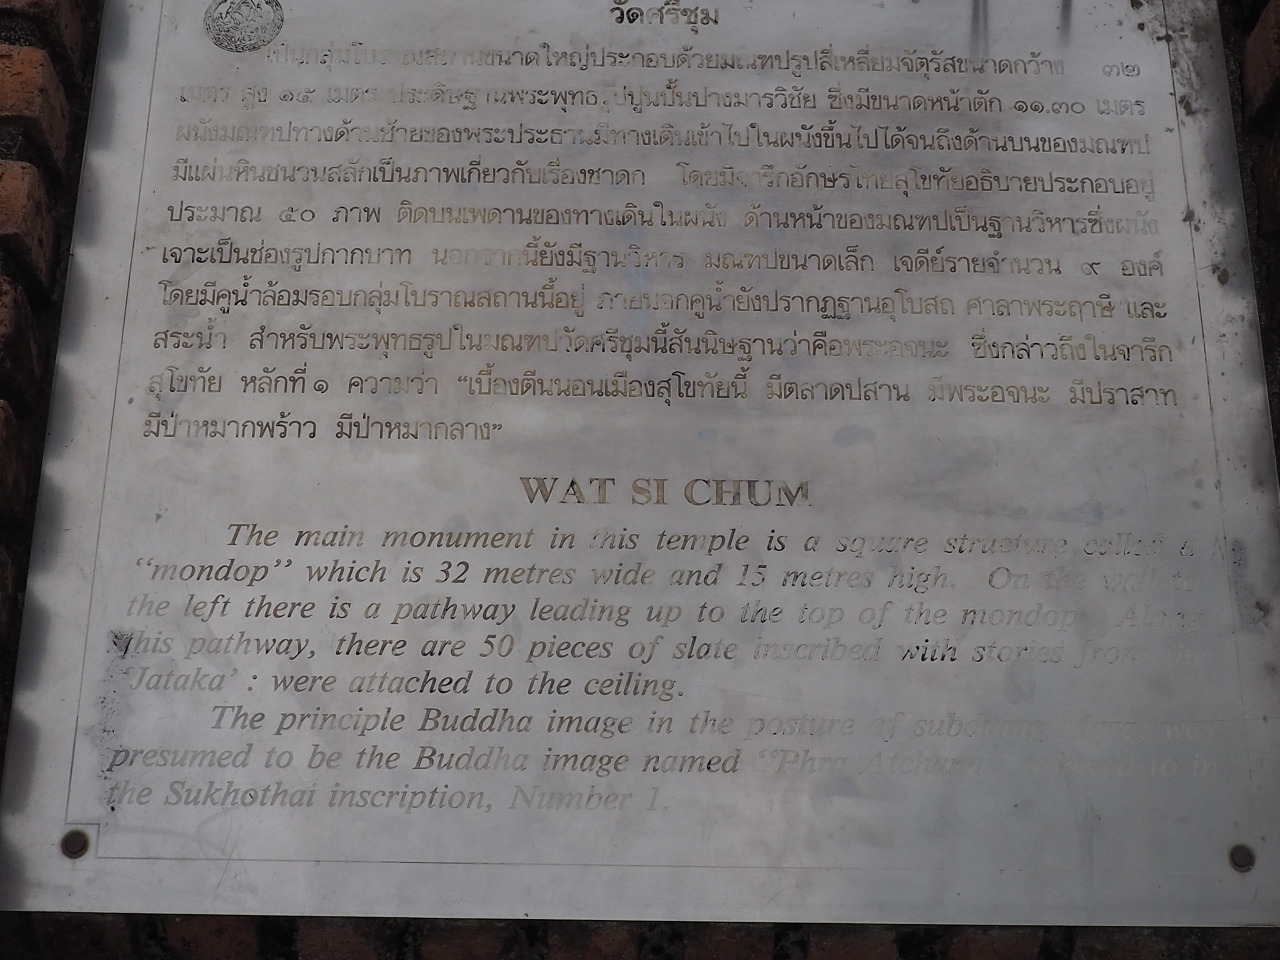 วัดศรีชุม
เป็นกลุ่มโบราณสถานขนาดใหญ่ประกอบด้วยมณฑปรูปสี่เหลี่ยมจัตุรัสขนาดกว้าง ๓๒
เมตร สูง ๑๕ เมตร ประดิษฐานพระพุทธรูปปูนปั้นปางมารวิชัย ซึ่งมีขนาดหน้าตัก ๑๑.๓๐ เมตร
ผนังมณฑปทางด้านซ้ายของพระประธานมีทางเดินเข้าไปในผนังขึ้นไปได้จนถึงด้านบนของมณฑป
มีแผ่นหินชนวนสลักเป็นภาพเกี่ยวกับเรื่องชาดก โดยมีจารึกอักษรไทยสุโขทัยอธิบายประกอบอยู่
ประมาณ ๕๐ ภาพ ติดบนเพดานของทางเดินในผนัง ด้านหน้าของมณฑปเป็นฐานวิหารซึ่งผนัง
เจาะเป็นช่องรูปกากบาท นอกจากนี้ยังมีฐานวิหาร มณฑปขนาดเล็ก เจดีย์รายจำนวน ๙ องค์
โดยมีคูน้ำล้อมรอบกลุ่มโบราณสถานนี้อยู่ ภายนอกคูน้ำยังปรากฏฐานอุโบสถ ศาลาพระฤาษี และ
สระน้ำ สำหรับพระพุทธรูปในมณฑปวัดศรีชุมนี้สันนิษฐานว่าคือพระอจนะ ซึ่งกล่าวถึงในจารึก
สุโขทัย หลักที่ ๑ ความว่า “เบื้องตีนนอนเมืองสุโขทัยนี้ มีตลาดปสาน มีพระอจนะ มีปราสาท
มีป่าหมากพร้าว มีป่าหมากลาง”
WAT SI CHUM
The main monument in this temple is a square structure called a
“mondop” which is 32 metres wide and 15 metres high. On the wall to
the left there is a pathway leading up to the top of the mondop. Along
this pathway, there are 50 pieces of slate inscribed with stories from the
‘Jataka’ : were attached to the ceiling.
The principle Buddha image in the posture of subduing Mara was
presumed to be the Buddha image named “Phra Atchana” referred to in
the Sukhothai inscription, Number 1.